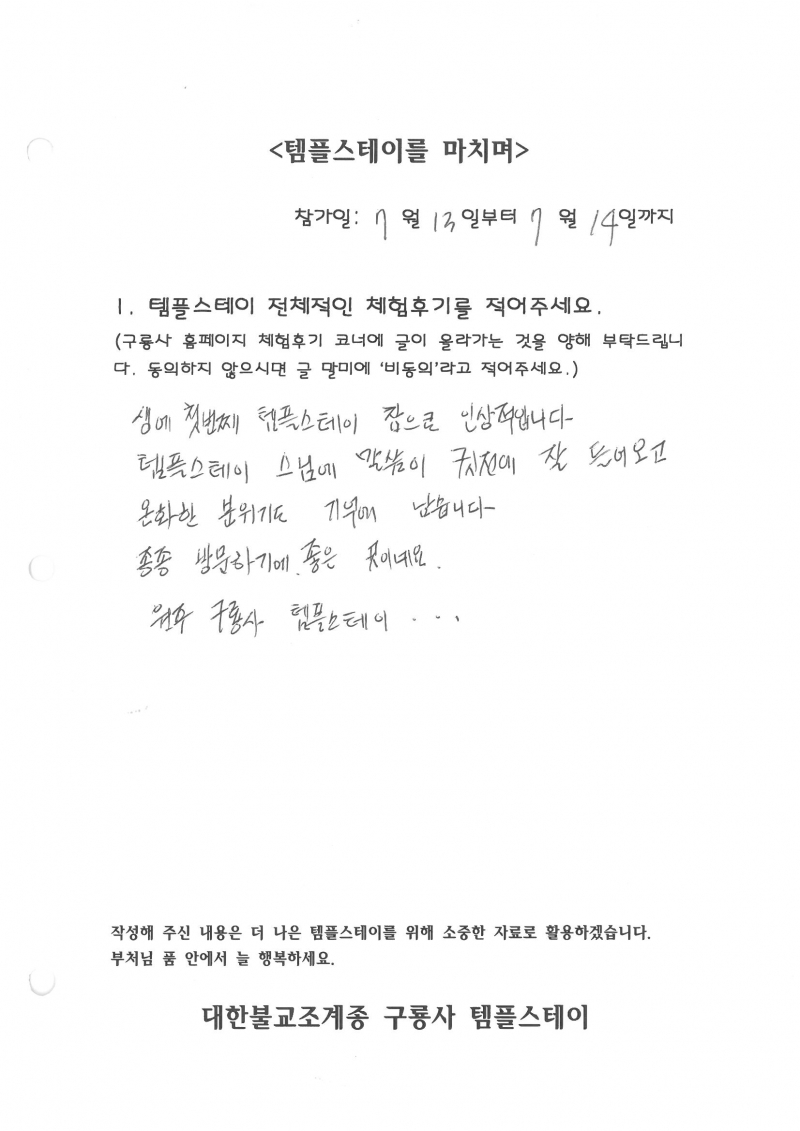 <템플스테이를 마치며>
참가일: 7 월 13일부터 7 월 14일까지
1. 템플스테이 전체적인 체험후기를 적어주세요.
(구룡사 홈페이지 체험후기 코너에 글이 올라가는 것을 양해 부탁드립니
다. 동의하지 않으시면 글 말미에 ‘비동의’라고 적어주세요.)
생에 첫번째 템플스테이 참으로 인상적입니다
템플스테이 스님에 말씀이 귓전에 잘 들어오고
온화한 분위기도 기억에 남습니다
종종 방문하기에 좋은 곳이네요.
원주 구룡사 템플스테이 . . .
작성해 주신 내용은 더 나은 템플스테이를 위해 소중한 자료로 활용하겠습니다.
부처님 품 안에서 늘 행복하세요.
대한불교조계종 구룡사 템플스테이